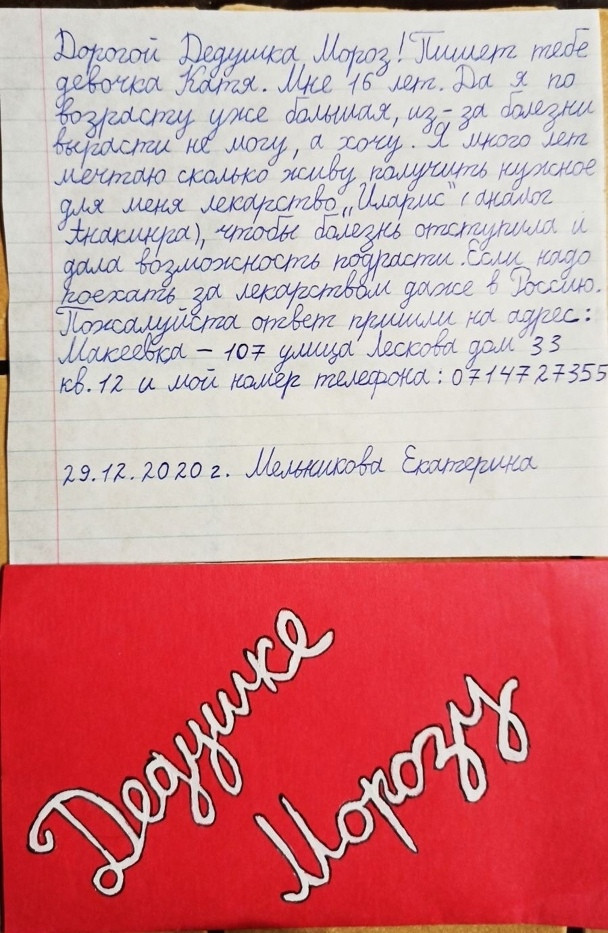 Дорогой Дедушка Мороз! Пишет тебе
девочка Катя. Мне 16 лет. Да я по
возрасту уже большая, из-за болезни
вырасти не могу, а хочу. Я много лет
мечтаю сколько живу получить нужное
для меня лекарство „Иларис" (аналог
Анакинра), чтобы болезнь отступила и
дала возможность подрасти. Если надо
поехать за лекарством даже в Россию.
Пожалуйста ответ пришли на адрес:
Макеевка – 107 улица Лескова дом 33
кв. 12 и мой номер телефона: 0714727355
29.12.2020 г. Мельникова Екатерина
Дедушке
Морозу